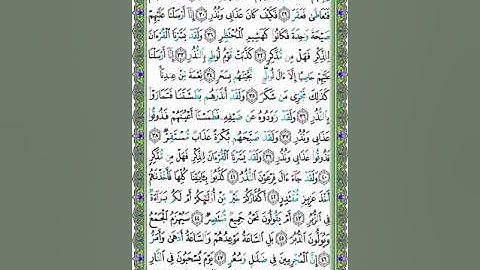 فَتَعَاطَىٰ فَعَقَرَ ٢٩ فَكَيْفَ كَانَ عَذَابِى وَنُذُرِ ٣٠ إِنَّآ أَرْسَلْنَا عَلَيْهِمْ
صَيْحَةً وَٰحِدَةً فَكَانُوا۟ كَهَشِيمِ ٱلْمُحْتَظِرِ ٣١ وَلَقَدْ يَسَّرْنَا ٱلْقُرْءَانَ
لِلذِّكْرِ فَهَلْ مِن مُّدَّكِرٍ ٣٢ كَذَّبَتْ قَوْمُ لُوطٍۭ بِٱلنُّذُرِ ٣٣ إِنَّآ أَرْسَلْنَا
عَلَيْهِمْ حَاصِبًا إِلَّآ ءَالَ لُوطٍ نَّجَّيْنَٰهُم بِسَحَرٍ ٣٤ نِّعْمَةً مِّنْ عِندِنَا
كَذَٰلِكَ نَجْزِى مَن شَكَرَ ٣٥ وَلَقَدْ أَنذَرَهُم بَطْشَتَنَا فَتَمَارَوْا۟
بِٱلنُّذُرِ ٣٦ وَلَقَدْ رَٰوَدُوهُ عَن ضَيْفِهِۦ فَطَمَسْنَآ أَعْيُنَهُمْ فَذُوقُوا۟
عَذَابِى وَنُذُرِ ٣٧ وَلَقَدْ صَبَّحَهُم بُكْرَةً عَذَابٌ مُّسْتَقِرٌّ ٣٨
فَذُوقُوا۟ عَذَابِى وَنُذُرِ ٣٩ وَلَقَدْ يَسَّرْنَا ٱلْقُرْءَانَ لِلذِّكْرِ فَهَلْ مِن مُّدَّكِرٍ
٤٠ وَلَقَدْ جَآءَ ءَالَ فِرْعَوْنَ ٱلنُّذُرُ ٤١ كَذَّبُوا۟ بِـَٔايَٰتِنَا كُلِّهَا فَأَخَذْنَٰهُمْ
أَخْذَ عَزِيزٍ مُّقْتَدِرٍ ٤٢ أَكُفَّارُكُمْ خَيْرٌ مِّنْ أُو۟لَٰٓئِكُمْ أَمْ لَكُم بَرَآءَةٌ
فِى ٱلزُّبُرِ ٤٣ أَمْ يَقُولُونَ نَحْنُ جَمِيعٌ مُّنتَصِرٌ ٤٤ سَيُهْزَمُ ٱلْجَمْعُ
وَيُوَلُّونَ ٱلدُّبُرَ ٤٥ بَلِ ٱلسَّاعَةُ مَوْعِدُهُمْ وَٱلسَّاعَةُ أَدْهَىٰ وَأَمَرُّ
٤٦ إِنَّ ٱلْمُجْرِمِينَ فِى ضَلَٰلٍ وَسُعُرٍ ٤٧ يَوْمَ يُسْحَبُونَ فِى ٱلنَّارِ